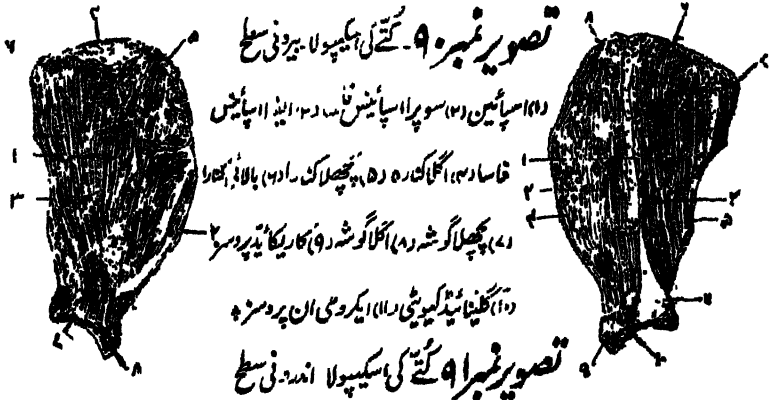 تصویر نمبر ۹۰ ۔ کُتّے کی اسکیپولا ۔ بیرونی سطح
(۱) اسپائین (۲) سوپرا اسپائینس فاسا (۳) انفرا اسپائینس
فاسا (۴) اگلا کنارہ (۵) پچھلا کنارا (۶) بالائی کنارا
(۷) پچھلا گوشہ (۸) اگلا گوشہ (۹) کاریکائیڈ پروسز
(۱۰) گلینائیڈ کیویٹی (۱۱) ایکرومی ان پروسز
تصویر نمبر ۹۱ کُتّے کی اسکیپولا اندرونی سطح
۲
۵
۶
۱
۳
۲
۸
۸
۶
۱
۲
۳
۵
۹